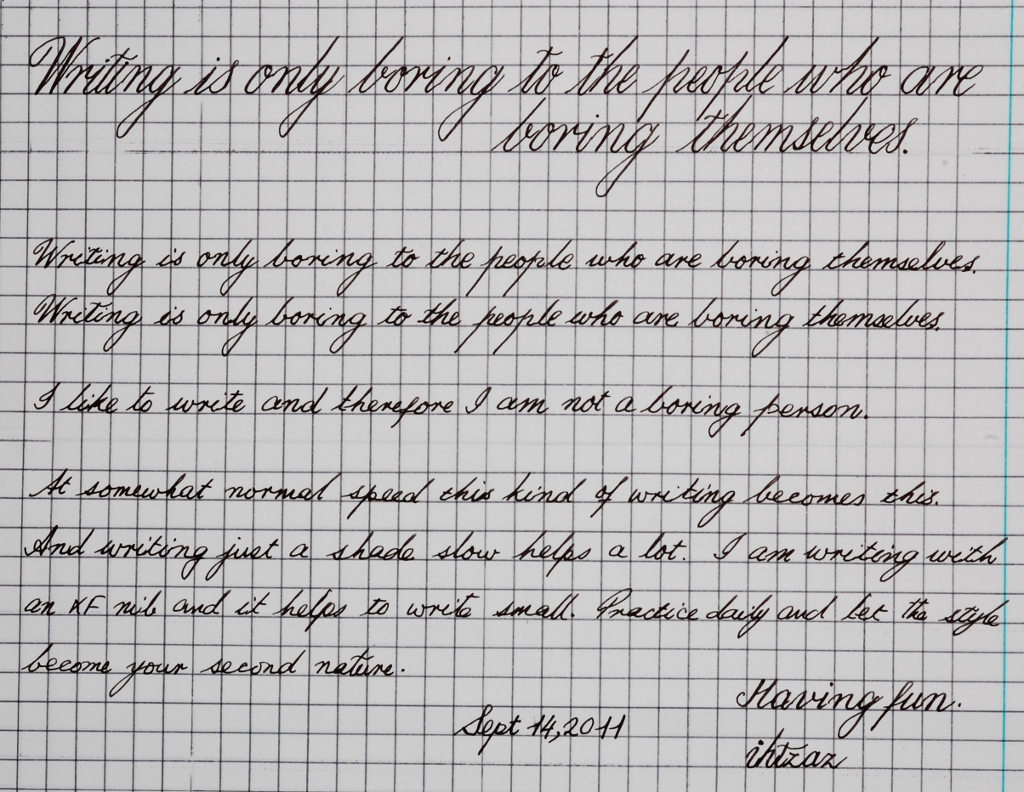 Writing is only boring to the people who are
boring themselves.
Writing is only boring to the people who are boring themselves.
Writing is only boring to the people who are boring themselves.
I like to write and therefore I am not a boring person.
At somewhat normal speed this kind of writing becomes this.
And writing just a shade slow helps a lot. I am writing with
an XF nib and it helps to write small. Practice daily and let the style
become your second nature.
Having fun.
Sept 14, 2011
ihtzaz